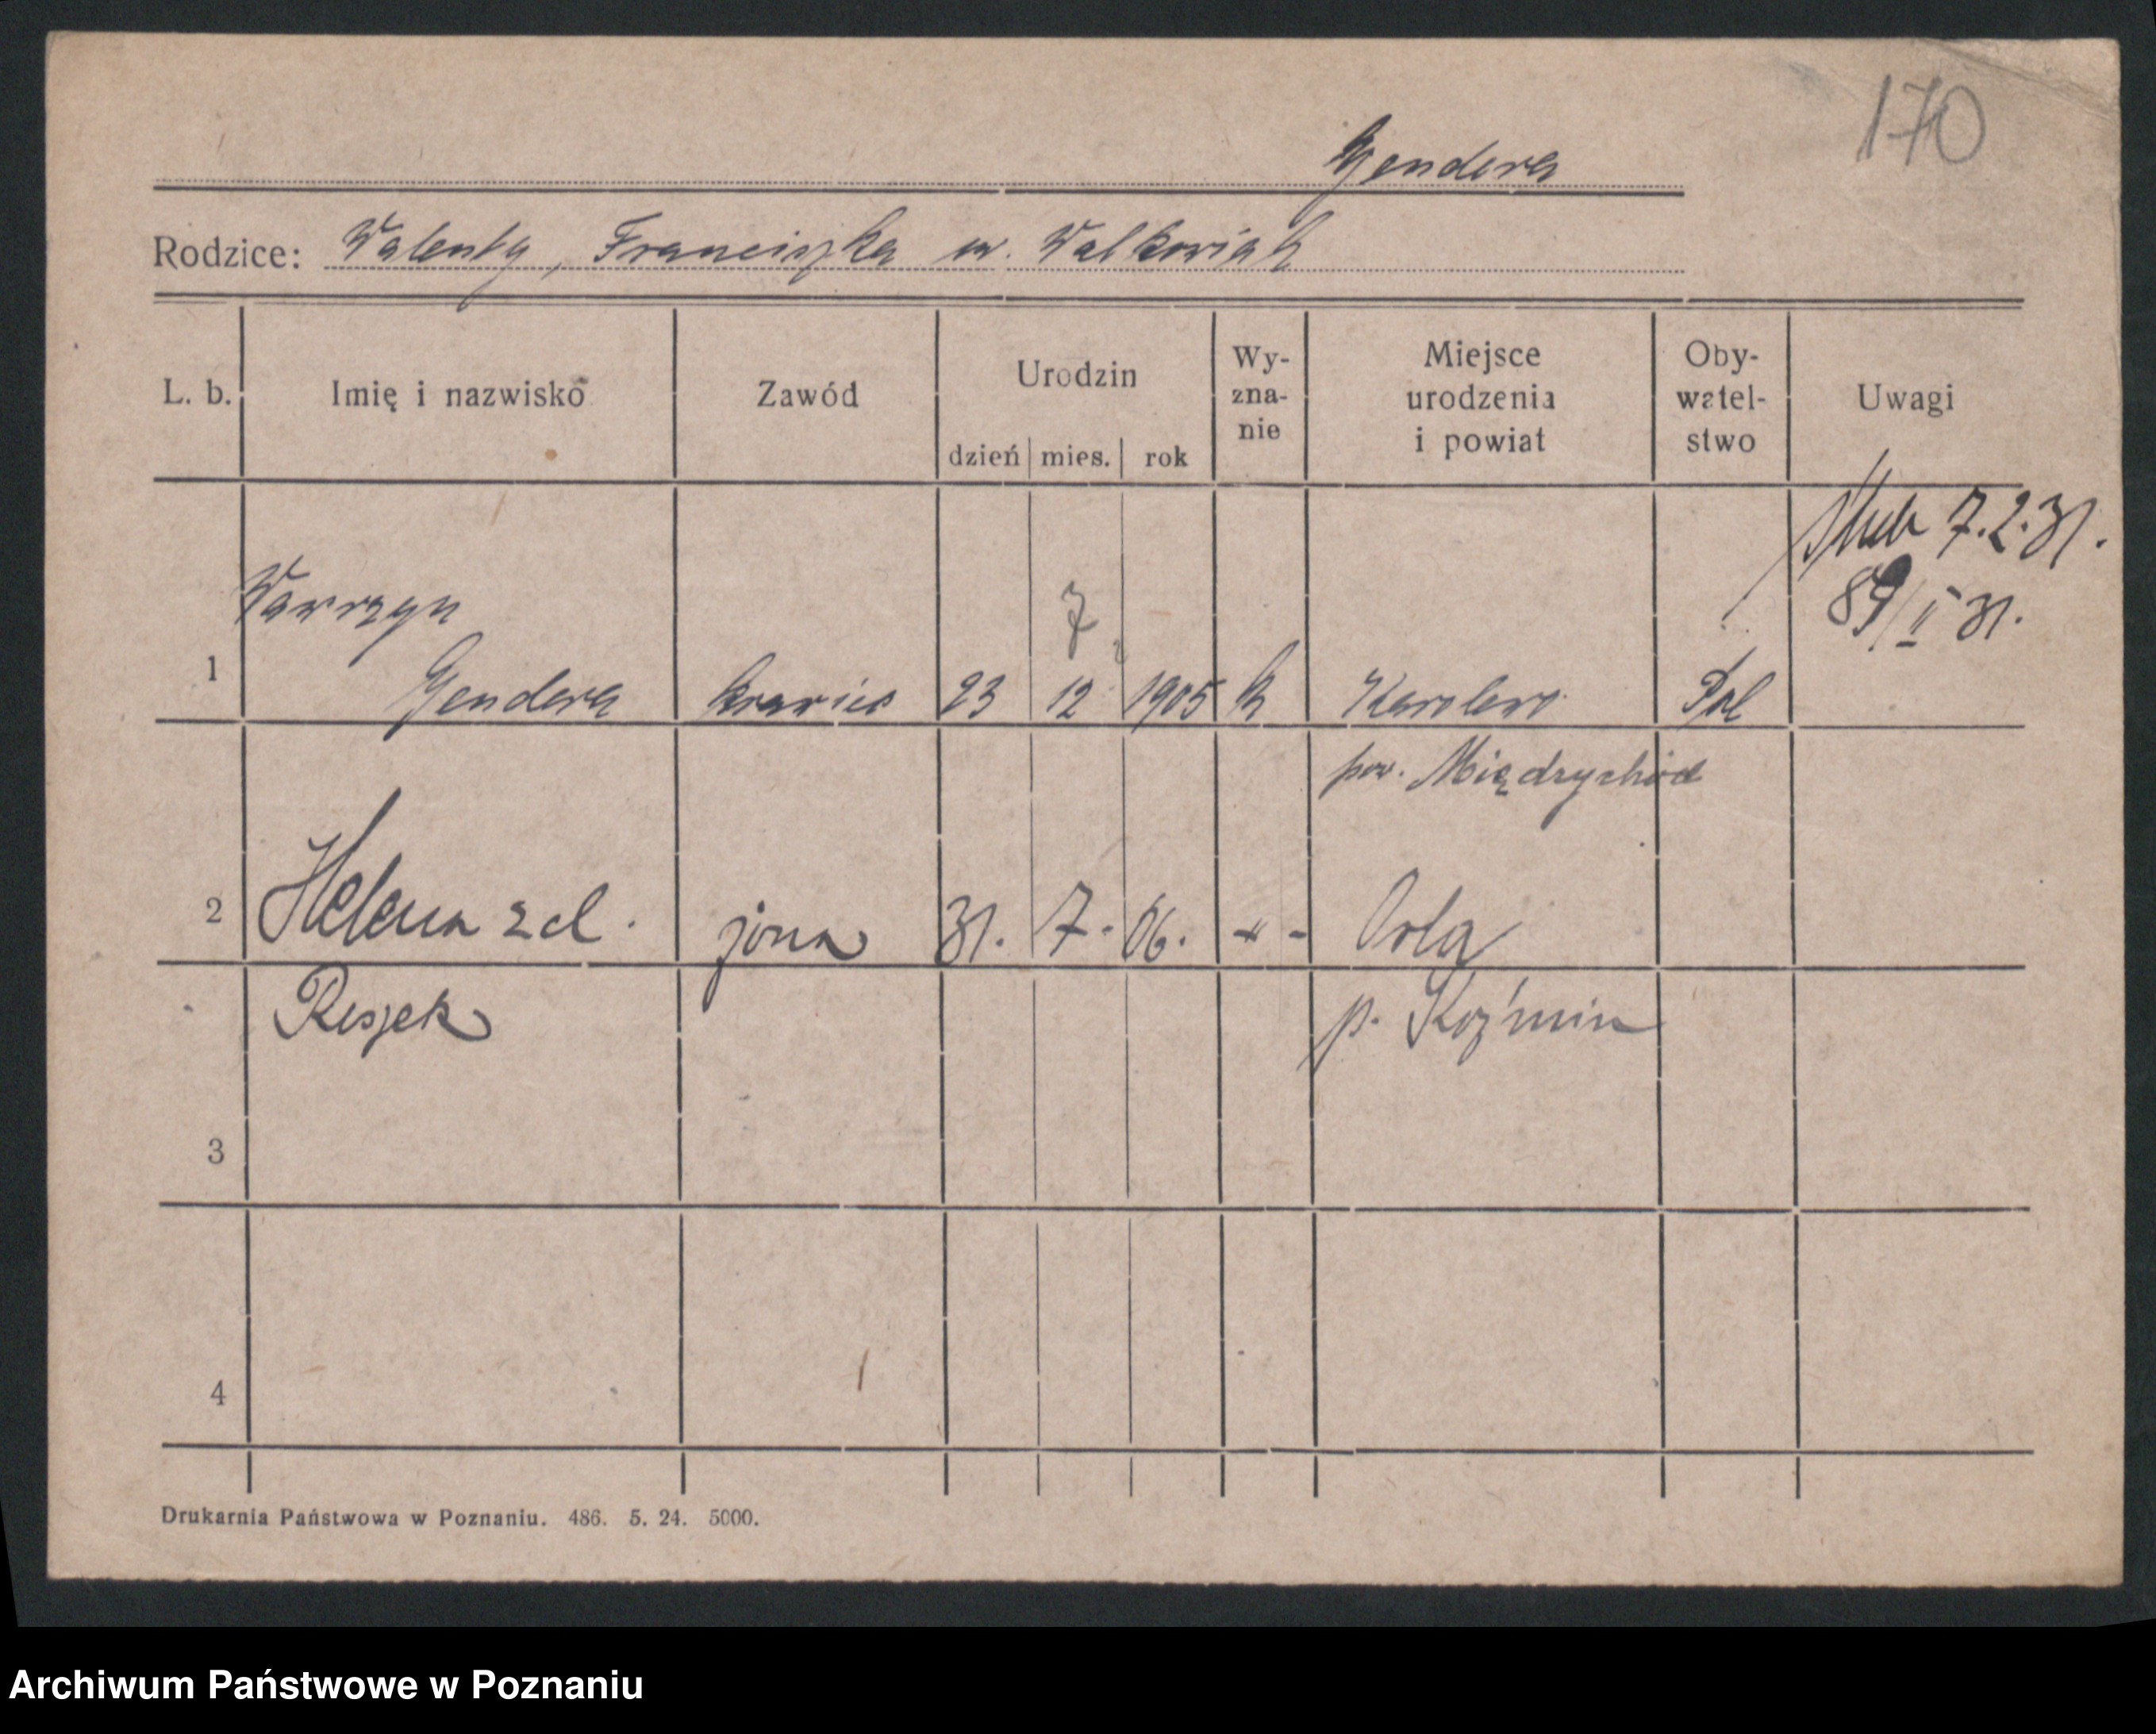 170
Gendera
Rodzice: Walenty, Franciszka w. Walkowiak
L. b. Imię i nazwisko Zawód Urodzin dzień mies. rok Wy-zna-nie Miejsce urodzenia i powiat Oby-watel-stwo Uwagi
ślub 7.2.31.
89/II 31.
Wawrzyn 7
1 Gendera krawiec 23 12 1905 k Pol
pow. Międzychód
2 Helena z d. żona 31. 7. 06. -"- Orla
Reszek p. Koźmin
3
4
Drukarnia Państwowa w Poznaniu. 486. 5. 24. 5000.
Archiwum Państwowe w Poznaniu